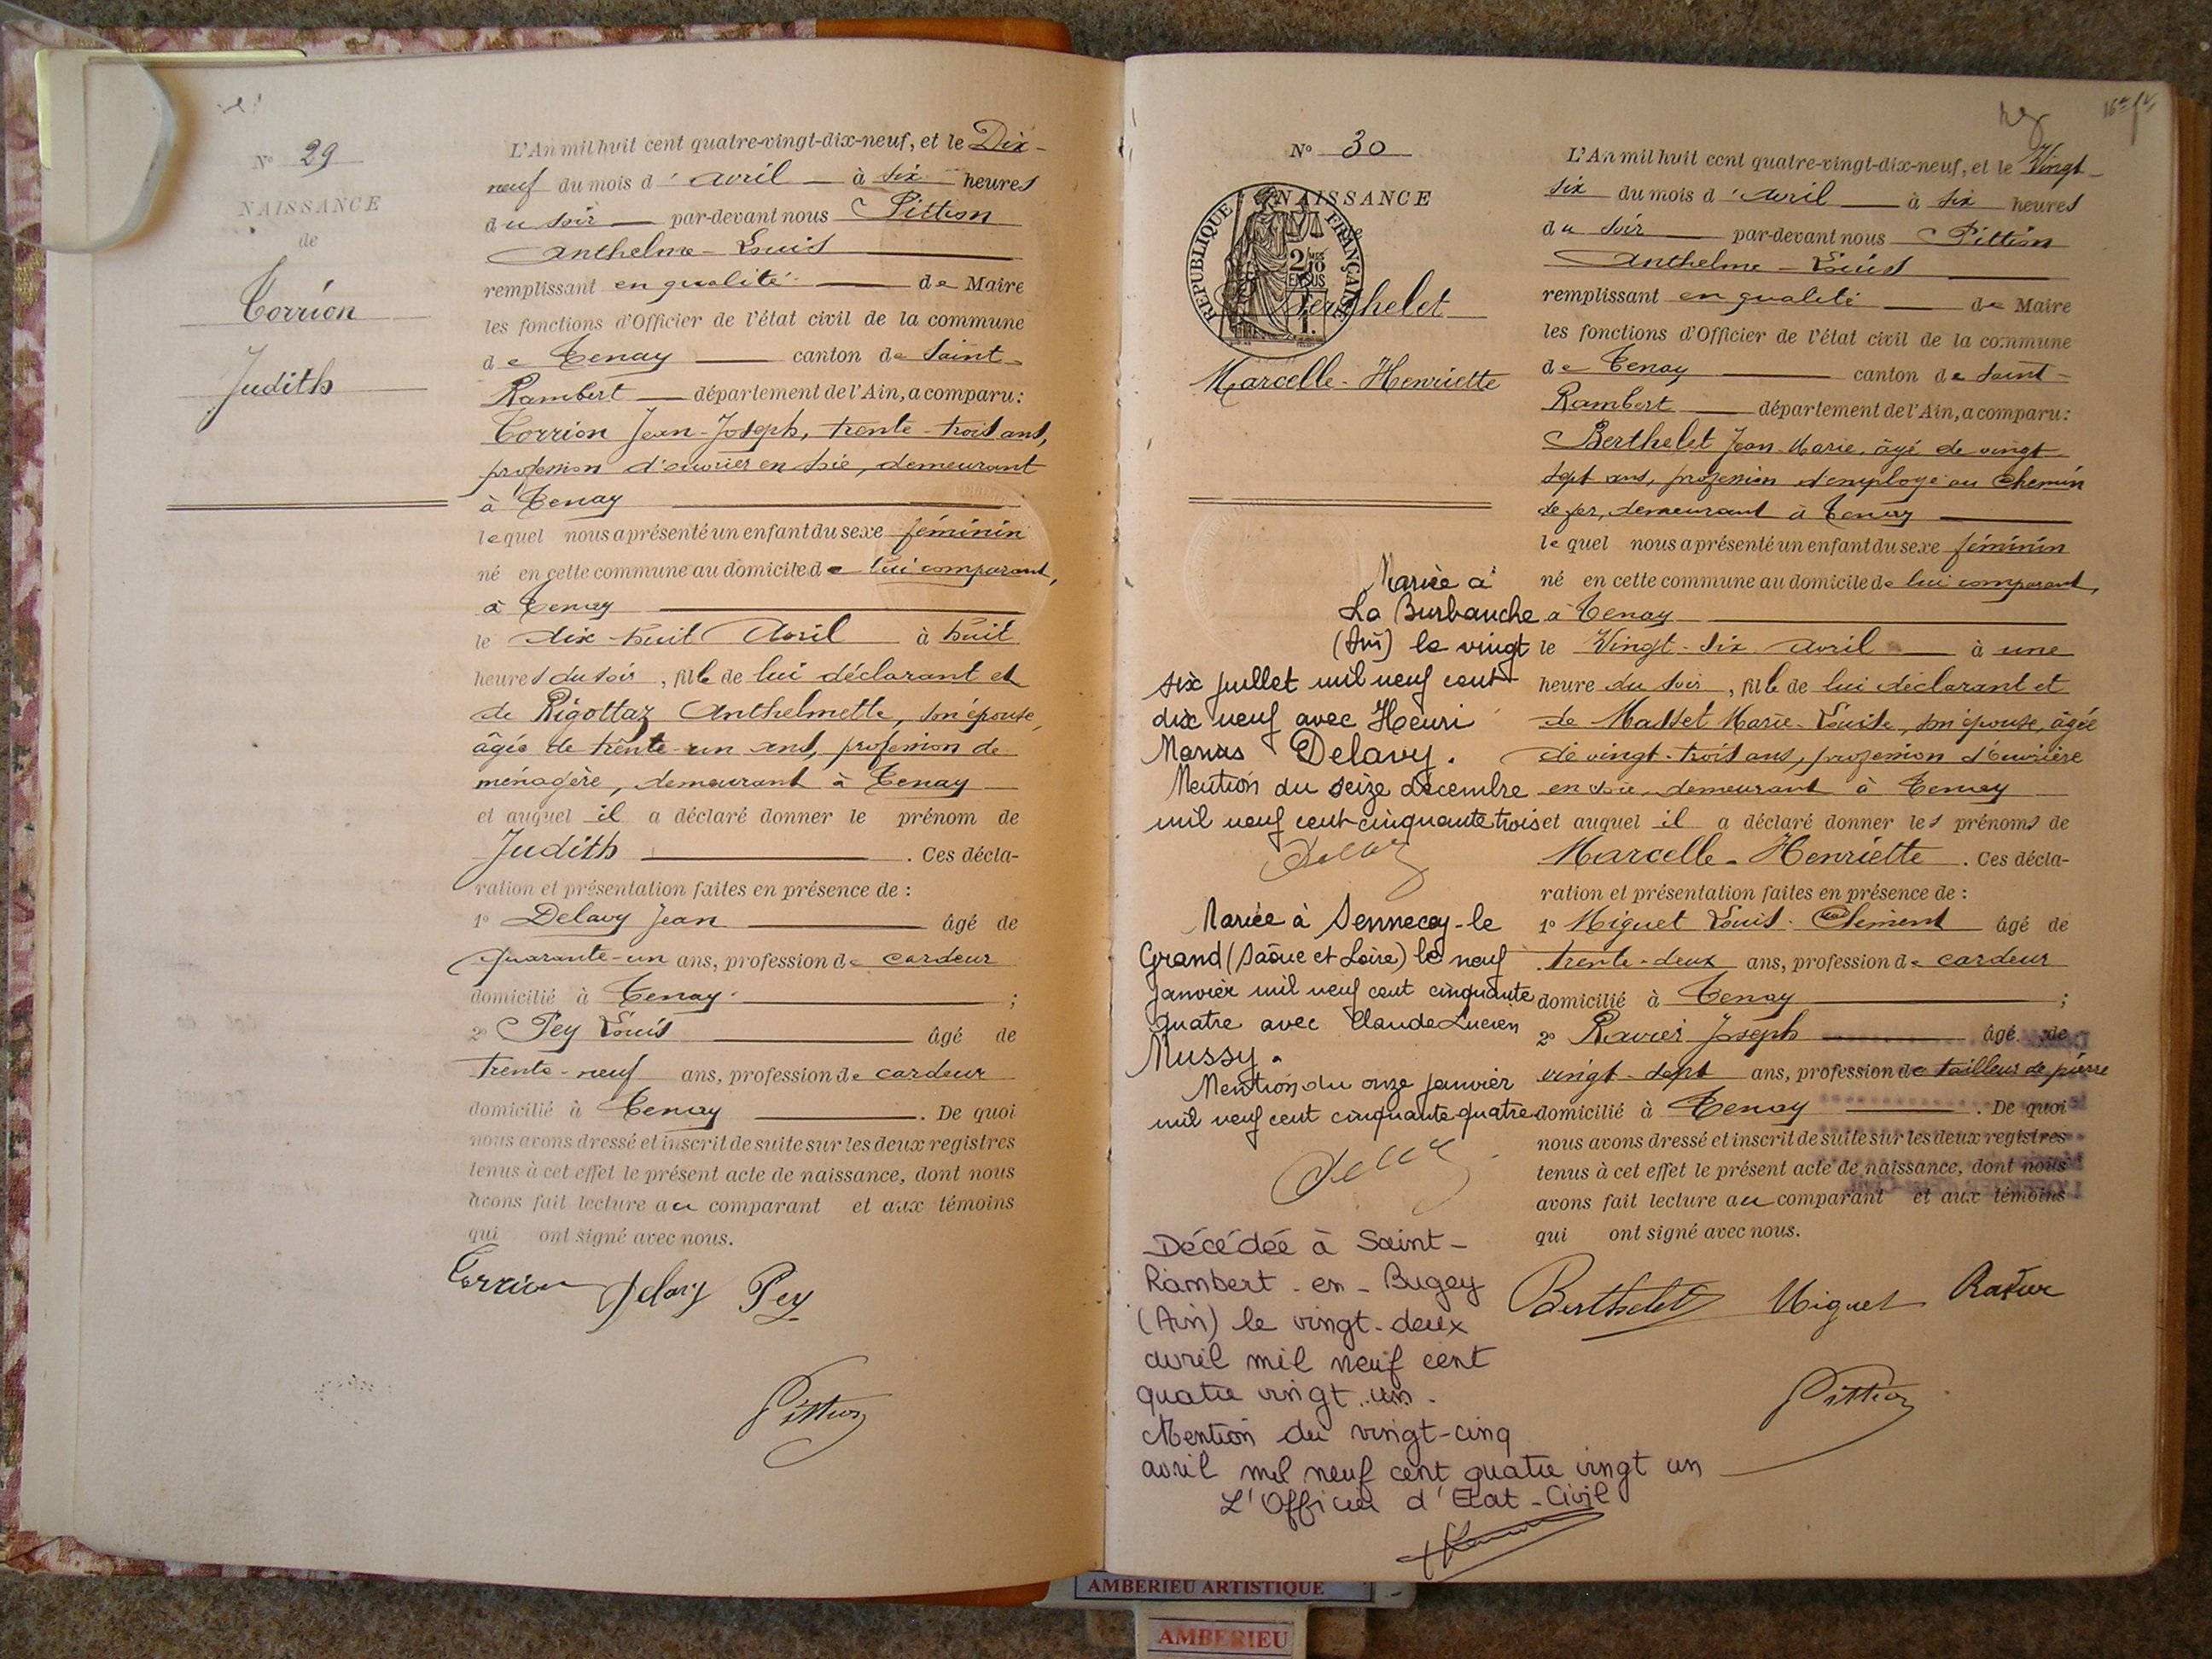 N° 29
NAISSANCE
de
Corrion
Judith
L'An mil huit cent quatre-vingt-dix-neuf, et le Dix-
neuf du mois d'avril à six heures
du soir par-devant nous Pittion
Anthelme-Louis
remplissant en qualité de Maire
les fonctions d'Officier de l'état civil de la commune
de Tenay canton de Saint-
Rambert département de l'Ain, a comparu:
Corrion Jean-Joseph, trente-trois ans,
profession d'ouvrier en soie, demeurant
à Tenay
lequel nous a présenté un enfant du sexe féminin
né en cette commune au domicile de lui comparant,
à Tenay
le dix-huit Avril à huit
heures du soir, fille de lui déclarant et
de Rigottaz Anthelmette, son épouse,
âgée de trente-un ans, profession de
ménagère, demeurant à Tenay
et auquel il a déclaré donner le prénom de
Judith. Ces décla-
ration et présentation faites en présence de :
1° Delavy Jean âgé de
quarante-un ans, profession de cardeur
domicilié à Tenay ;
2° Pey Louis âgé de
trente-neuf ans, profession de cardeur
domicilié à Tenay. De quoi
nous avons dressé et inscrit de suite sur les deux registres
tenus à cet effet le présent acte de naissance, dont nous
avons fait lecture au comparant et aux témoins
qui ont signé avec nous.
Corrion Delavy Pey
Pittion
N° 30
NAISSANCE
RÉPUBLIQUE FRANÇAISE
2/10 MES
EN SUS
Berthelet
Marcelle-Henriette
L'An mil huit cent quatre-vingt-dix-neuf, et le Vingt-
six du mois d'avril à six heures
du soir par-devant nous Pittion
Anthelme-Louis
remplissant en qualité de Maire
les fonctions d'Officier de l'état civil de la commune
de Tenay canton de Saint-
Rambert département de l'Ain, a comparu:
Berthelet Jean-Marie, âgé de vingt
sept ans, profession d'employé au Chemin
de fer, demeurant à Tenay
lequel nous a présenté un enfant du sexe féminin
né en cette commune au domicile de lui comparant,
à Tenay
le Vingt-six avril à une
heure du soir, fille de lui déclarant et
de Masset Marie-Louise, son épouse, âgée
de vingt-trois ans, profession d'ouvrière
en soie demeurant à Tenay
et auquel il a déclaré donner les prénoms de
Marcelle-Henriette. Ces décla-
ration et présentation faites en présence de :
1° Miguet Louis-Clément âgé de
trente-deux ans, profession de cardeur
domicilié à Tenay ;
2° Ravier Joseph âgé de
vingt-sept ans, profession de tailleur de pierre
domicilié à Tenay. De quoi
nous avons dressé et inscrit de suite sur les deux registres
tenus à cet effet le présent acte de naissance, dont nous
avons fait lecture au comparant et aux témoins
qui ont signé avec nous.
Berthelet Miguet Ravier
Pittion
Mariée à
La Burbanche
(Ain) le vingt
six juillet mil neuf cent
dix neuf avec Henri
Marius Delavy.
Mention du seize décembre
mil neuf cent cinquante trois
Mariée à Sennecey-le
Grand (Saône et Loire) le neuf
janvier mil neuf cent cinquante
quatre avec Claude Lucien
Mussy.
Mention du onze janvier
mil neuf cent cinquante quatre
Décédée à Saint-
Rambert-en-Bugey
(Ain) le vingt-deux
avril mil neuf cent
quatre vingt un.
Mention du vingt-cinq
avril mil neuf cent quatre vingt un
L'Officier d'Etat-Civil
AMBERIEU ARTISTIQUE
AMBERIEU